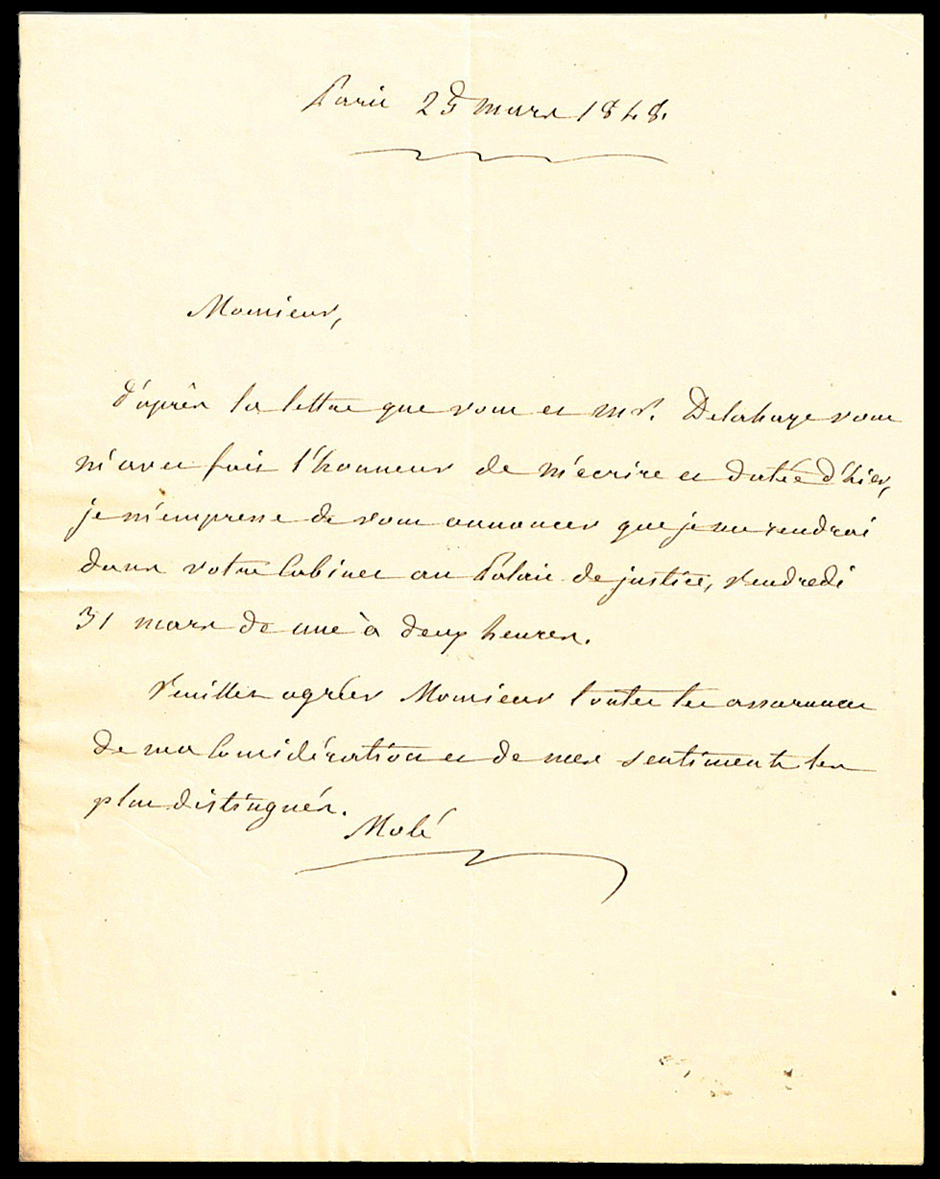 Paris 25 mars 1848.
Monsieur,
d'après la lettre que vous et mr. Delahaye vous
m'avez fait l'honneur de m'écrire et datée d'hier,
je m'empresse de vous annoncer que je me rendrai
dans votre Cabinet au Palais de justice, vendredi
31 mars de une à deux heures.
Veuillez agréer Monsieur toutes les assurances
de ma Considération et de mes sentiments les
plus distingués.
Molé